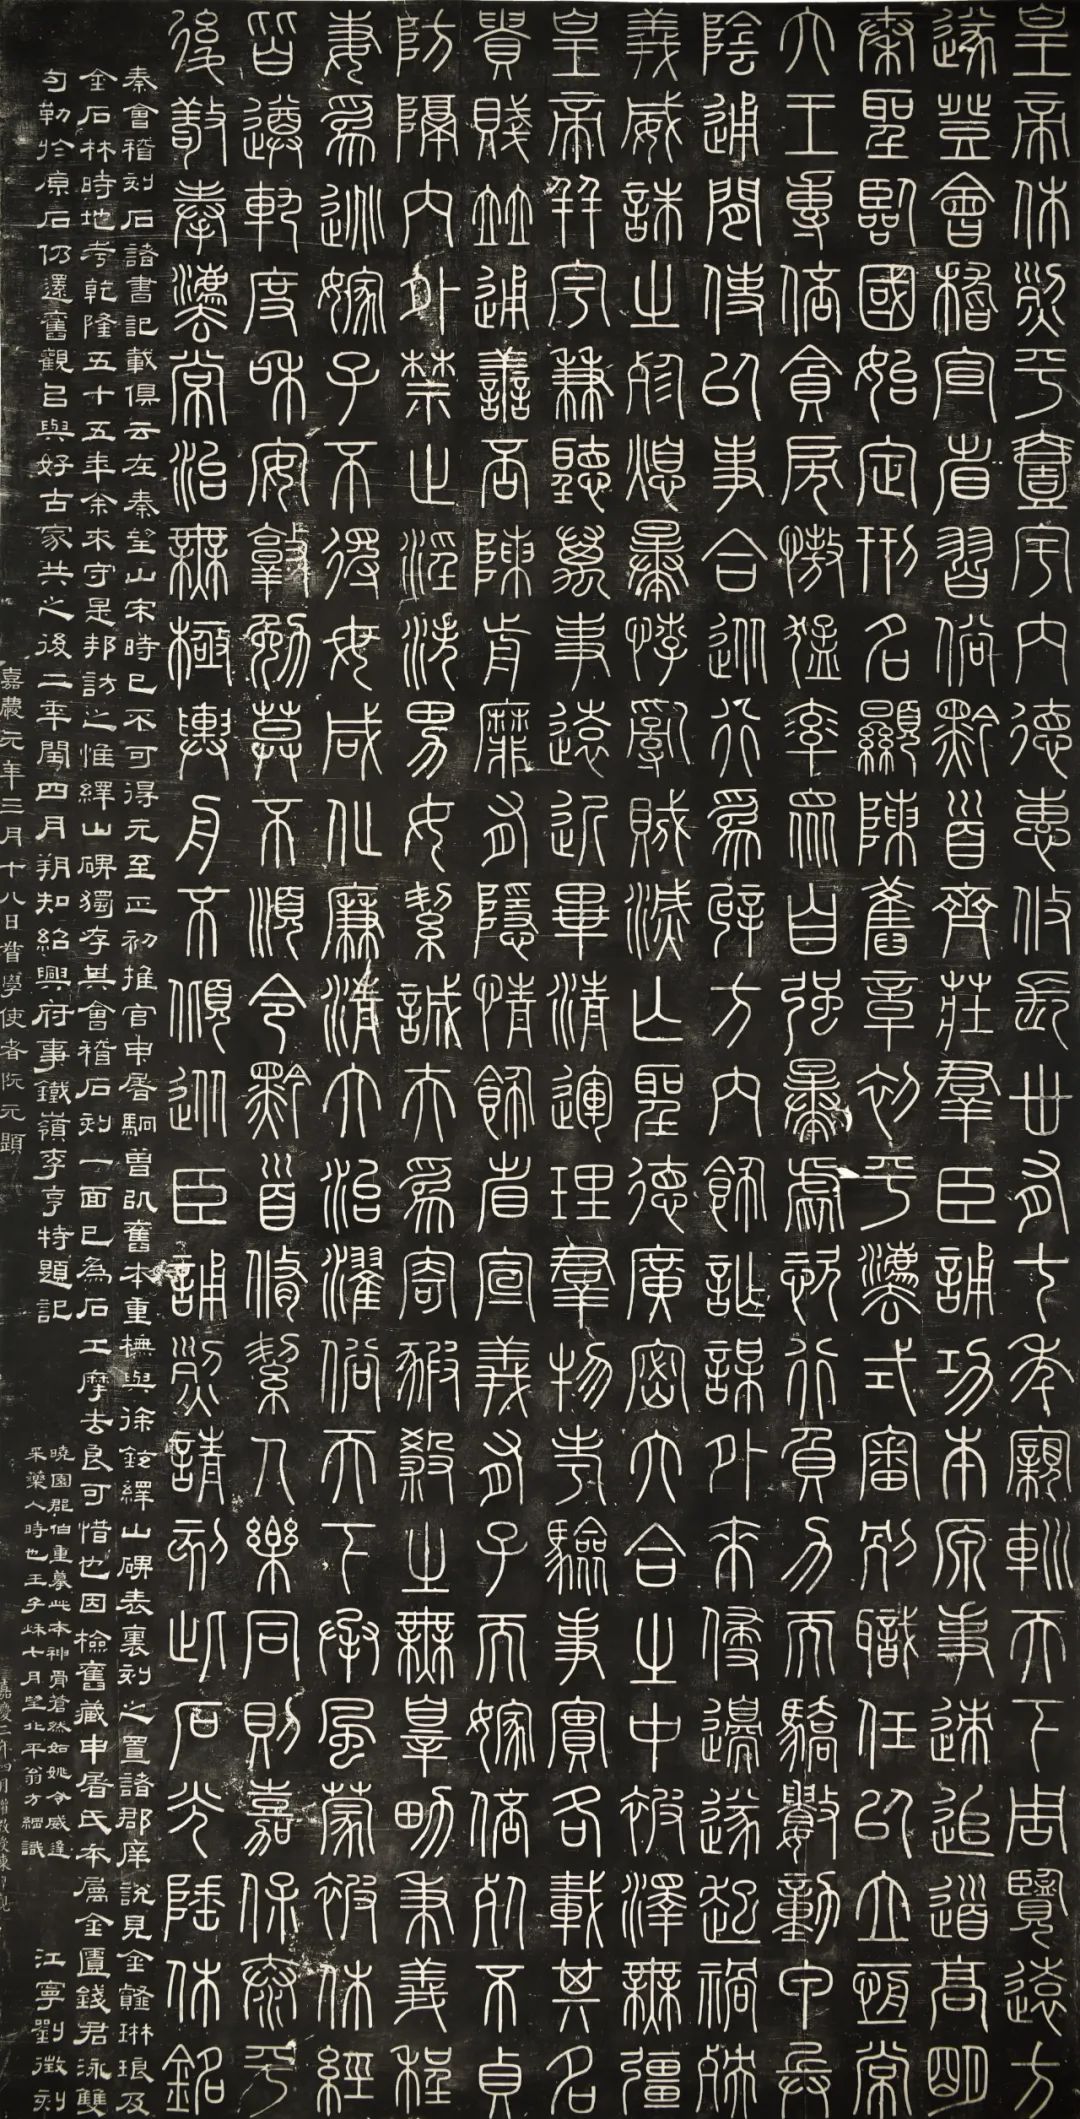 皇帝休烈平壹宇内德惠攸長卅有七年親𨊠天下周覽遠方
遂登會稽宣省習俗黔首齊莊羣臣誦功本原事迹追道高明
秦聖臨國始定刑名顯陳舊章初平灋式審別職任㠯立恆常
六王專倍貪戾慠猛率眾自强暴虐恣行負力而驕數動甲兵
陰通閒使㠯事合從行為辟方內飾詐謀外來侵邊遂起禍殃
義威誅之殄熄暴悖亂賊滅亡聖德廣密六合之中被澤無彊
皇帝幷宇兼聽萬事遠近畢清運理羣物考驗事實各載其名
貴賤並通善否陳前靡有隱情飾省宣義有子而嫁倍死不貞
防隔內外禁止淫泆男女絜誠夫為寄豭殺之無辠男秉義程
妻為逃嫁子不得母咸化廉清大治濯俗天下承風蒙被休經
皆遵軌度和安敦勉莫不順令黔首脩絜人樂同則嘉保泰平
後敬奉灋常治無極輿舟不傾從臣誦烈請刻此石光陲休銘
秦會稽刻石諸書記載俱云在秦望山宋時已不可得元至正初推官申屠駉曾㠯舊本重橅與徐鉉繹山碑表裏刻之置諸郡庠說見金薤琳琅及
金石林時地考乾隆五十五年余來守是邦訪之惟繹山碑獨存其會稽石刻一面已為石工摩去良可惜也因檢舊藏申屠氏本屬金匱錢君泳雙
勾勒於原石仍還舊觀㠯與好古家共之後二年閏四月朔知紹興府事鐵嶺李亨特題記
江寧劉徵刻
曉園郡伯重摹此本神骨蒼然如姚令威逢
采藥人時也壬子秋七月望北平翁方綱識
嘉慶元年三月十八日督學使者阮元題